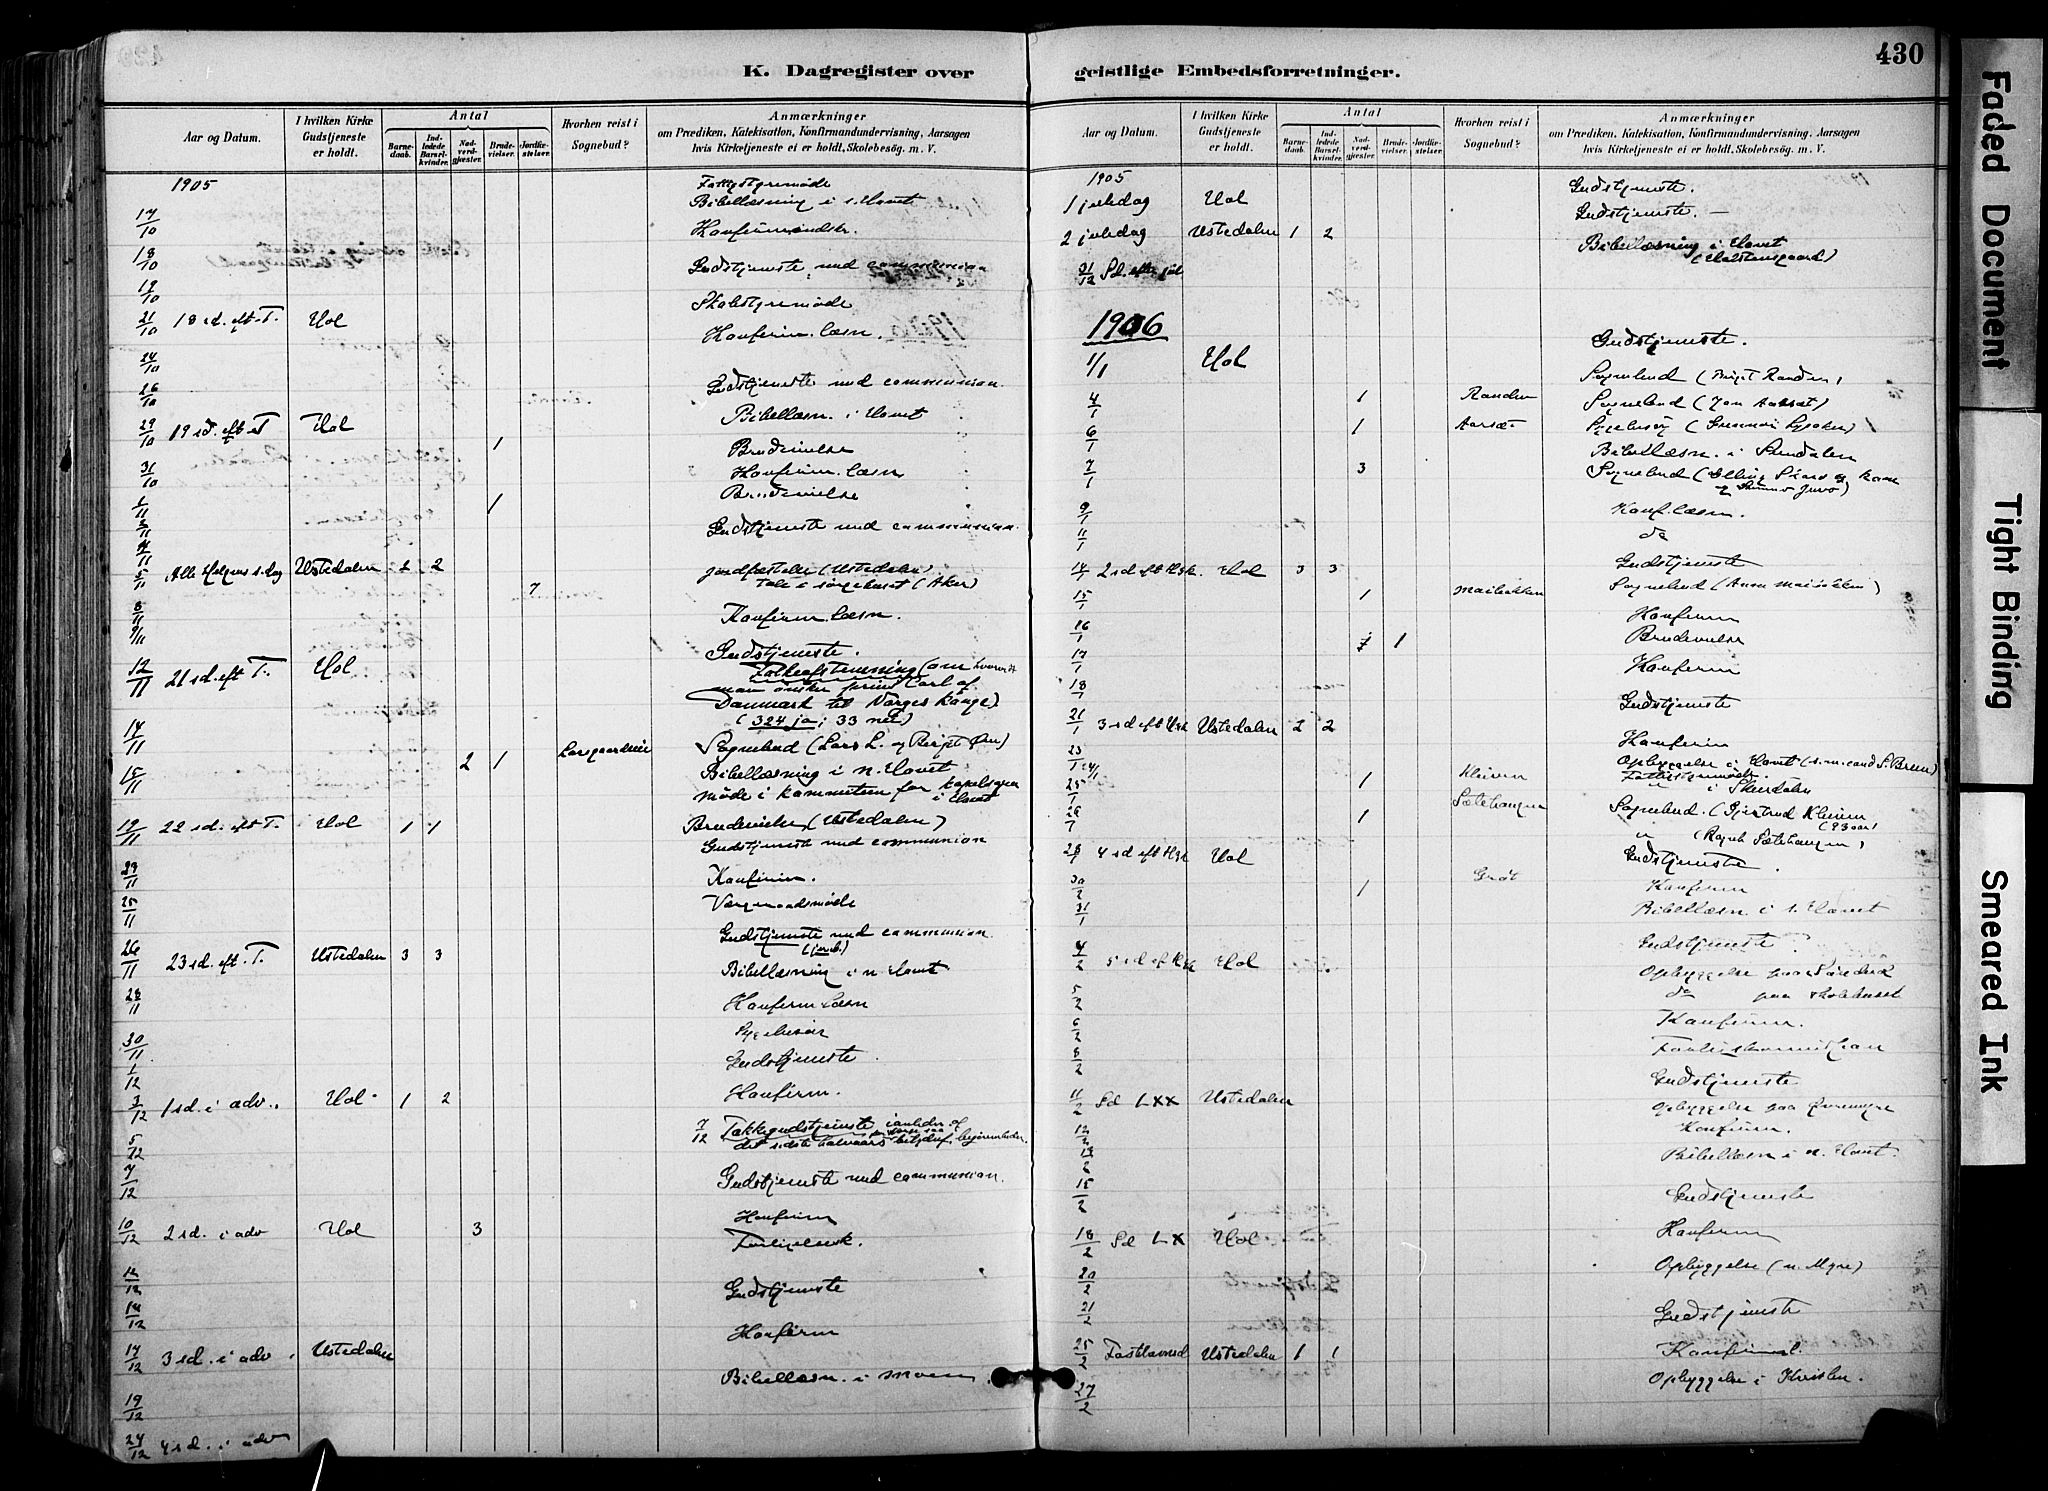 430
K. Dagregister over
geistlige Embedsforretninger.
Aar og Datum.
I hvilken Kirke Gudstjeneste er holdt.
Antal
Barne-daab.
Ind-ledede Barsel-kvinder.
Nad-verd-gjæster.
Brude-vielser.
Jordfæ-stelser.
Hvorhen reist i Sognebud?
Anmærkninger
om Prædiken, Katekisation, Konfirmandundervisning, Aarsagen
hvis Kirketjeneste ei er holdt, Skolebesøg. m. V.
1905
Fattigstyremøde
17/10 Bibellæsning i s. Havet
18/10
Gudstjeneste med communion
19/10 Skolestyremøde
21/10 18 sd. eft. T. Hol
Konfirm. læsn.
24/10
26/10 Gudstjeneste med communion
29/10 19 sd. eft T Hol
Bibellæsn. i Havet
1 Brudevielse
31/10 Konfirm. læsn
1/11 1 Brudevielse
Gudstjeneste med communion.
5/11 Alle Helgens s.dag Ustedalen 2 2
Jordfæstelse (Ustedalen)
7 Tale i sørgehuset (Aker)
8/11
9/11 Konfirm. læsn.
12/11 21 sd. eft T. Hol
Gudstjeneste.
Folkeafstemning (om hvorvidt
man ønsker prins Carl af
Danmark til Norges konge)
(324 ja; 33 nei)
14/11 2 1 Sognebud (Lars L. og Birgit Øen)
15/11 Bibellæsning i n. Havet
møde i kommiteen for kapelsagen
i Havet
19/11 22 sd. eft T. Hol 1 1 Brudevielse (Ustedalen)
Gudstjeneste med communion
Konfirm.
25/11 Vergeraadsmøde
Gudstjeneste med communion.
26/11 23 sd. eft. T. Ustedalen 3 3
Bibellæsning i n. Havet
28/11 Konfirm læsn
Sygebesøg
30/11 Gudstjeneste
1/12
3/12 1 sd. i adv. Hol 1 2 Konfirm.
7/12 Takkegudstjeneste i anledn. af
det sidste halvaars
5/12
7/12 Gudstjeneste med communion.
10/12 2 sd. i adv Hol 3 Konfirm
12/12 Gudstjeneste
14/12
Konfirm
17/12 3 sd. i adv. Ustedalen
Bibellæsn. i moen
19/12
24/12 4 sd. i adv
Aar og Datum.
I hvilken Kirke Gudstjeneste er holdt.
Antal
Barne-daab.
Ind-ledede Barsel-kvinder.
Nad-verd-gjæster.
Brude-vielser.
Jordfæ-stelser.
Hvorhen reist i Sognebud?
Anmærkninger
om Prædiken, Katekisation, Konfirmandundervisning, Aarsagen
hvis Kirketjeneste ei er holdt, Skolebesøg. m. V.
1905
1 juledag Hol Gudstjeneste.
2 juledag Ustedalen 1 2 Gudstjeneste. —
31/12 Sd. efter jul Bibellæsning i Havet
(Halstensgaard)
1906
1/1 Hol Gudstjeneste.
4/1 1 Randen Sognebud (Birgit Randen)
6/1 1 Aarset Sognebud (Jon Aarset)
Sygebesøg
7/1 3 Bibellæsn. i Skurdalen
9/1 Konf. læsn.
11/1 do
14/1 2 sd eft H3k. Hol 3 3 Gudstjeneste
15/1 1 Maibakken Sognebud (Anne Maibakken)
16/1 Konfirm
17/1 1 Brudevielse
18/1 Konfirm
21/1 3 sd eft H3k Ustedalen 2 2 Gudstjeneste
23/1 Konfirm
24/1 Opbyggelse i Havet (s.m. cand S. Bruun)
Fattigstyremøde.
25/1 1 Kleiven " i Skurdalen
26/1 1 Sætehaugen Sognebud. (Gjertrud Kleiven
(93 aar)
" (Sætehaugen)
28/1 4 sd eft H3k Hol Gudstjeneste.
1 Grøt Konfirm
31/1 Bibellæsn. i s. Havet
4/2 5 sd eft H3k Hol Gudstjeneste
5/2 do paa skolehuset
6/2 Konfirm.
8/2
11/2 Sd LXX Ustedalen Gudstjeneste
12/2 Konfirm.
13/2 Bibellæsn i n. Havet.
15/2
Gudstjeneste
18/2 Sd LX Hol Konfirm
20/2 Opbyggelse (n. Myre)
21/2 Gudstjeneste
25/2 Fastelavnsd Ustedalen 1 1 Konfirm.
27/2 Opbyggelse i
Faded Document
Tight Binding
Smeared Ink